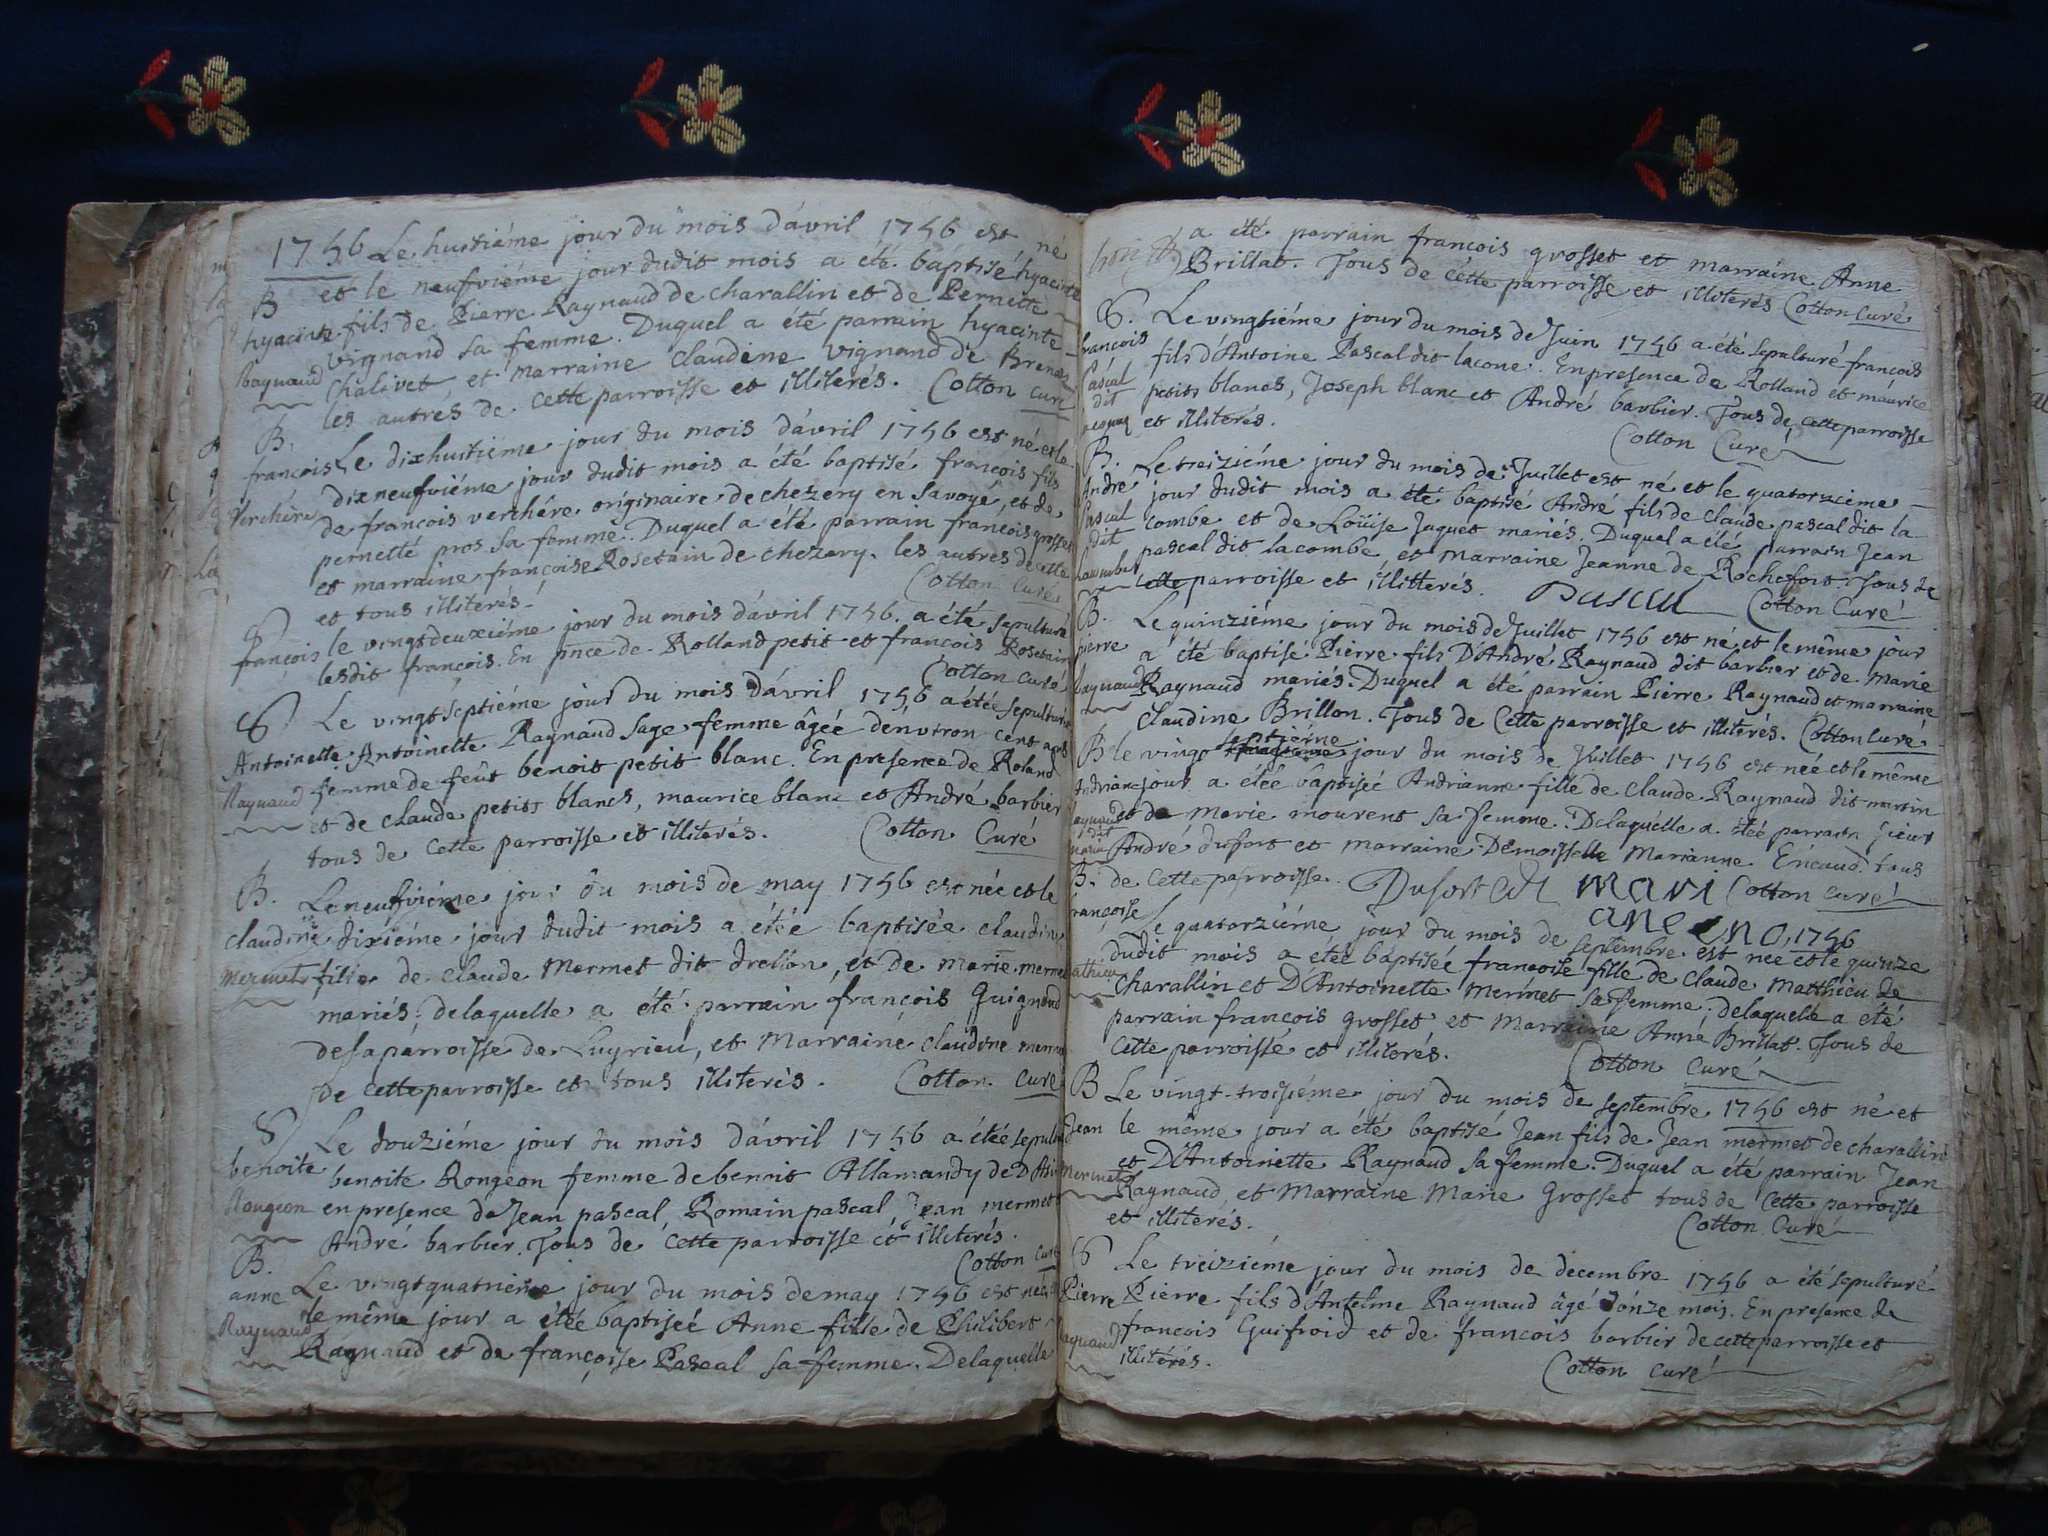 1756 Le huitiéme jour du mois d'avril 1756 est né
B et le neufviéme jour dudit mois a été baptisé hyacinte
hyacinte fils de Pierre Raynaud de charallin et de Pernette
Raynaud vignand sa femme. Duquel a été parrain hyacinte
chalivet et marraine claudine vignand de Brenas
les autres de cette parroisse et illiterés. Cotton curé
B.
françois Le dixhuitiéme jour du mois d'avril 1756 est né et le
dixneufviéme jour dudit mois a été baptisé françois fils
Verchére de françois verchére originaire de chezery en Savoye, et de
pernette pros sa femme. Duquel a été parrain francois grosset
et marraine françoise Rosetain de chezery. les autres de cette
et tous illiterés. Cotton Curé
S
françois le vingtdeuxiéme jour du mois d'avril 1756 a été sepulturé
lesdit françois. En pnce de Rolland petit et francois Rosetain
Cotton curé
S Le vingtseptiéme jour du mois d'avril 1756 a étée sepulturée
Antoinette Antoinette Raynaud sage femme âgée denvtron cent ans
Raynaud femme de feût benoit petit blanc. En presence de Roland
et de claude petits blancs, maurice blanc et André barbier
tous de cette parroisse et illiterés. Cotton Curé
B. Le neufviéme jour du mois de may 1756 est née et le
claudine dixiéme jour dudit mois a étée baptisée claudine
mermet fille de claude Mermet dit drellon, et de marie mermet
mariés. delaquelle a été parrain françois Guignard
de la parroisse de Luyrieu, et Marraine claudine mermet
de cette parroisse et tous illiterés. Cotton curé
S Le douziéme jour du mois d'avril 1756 a étée sepulturée
benoite benoite Rongeon femme de benoit Allamandy de
Rongeon en presence de Jean pascal, Romain pascal Jean mermet
André barbier. Tous de cette parroisse et illiterés.
B. Cotton curé
anne Le vingtquatriéme jour du mois de may 1756 est née
Raynaud le même jour a étée baptiseé Anne fille de Philibert
Raynaud et de françoise Pascal sa femme. Delaquelle
a été parrain francois grosset et marraine Anne
Brillat. Tous de cette parroisse et illiterés Cotton Curé
S. Le vingtiéme jour du mois de Juin 1756 a été sepulturé francois
francois fils d'Antoine Pascal dit lacone. En presence de Rolland et maurice
Pascal dit petits blancs, Joseph blanc et André barbier. Tous de cette parroisse
et illiterés. Cotton Curé
B. Le treiziéme jour du mois de Juillet est né et le quatorzieme
André jour dudit mois a été baptisé André fils de claude pascal dit la
Pascal combe et de Loüise Jaquet mariés. Duquel a été parrain Jean
dit pascal dit lacombe et marraine Jeanne de Rochefort. Tous de
lacombe cette parroisse et illitterés. Pascal Cotton Curé
B. Le quinziéme jour du mois de Juillet 1756 est né et le même jour
pierre a été baptise Pierre fils D'André Raynaud dit barbier et de Marie
Raynaud Raynaud mariés. Duquel a été parrain Pierre Raynaud et marraine
claudine Brillon. Tous de Cette parroisse et illiterés. Cotton Curé
B le vingt septieme jour du mois de Juillet 1756 est née et le même
Andrianne jour a étée baptiseé Andrianne fille de claude Raynaud dit martin
Raynaud et de Marie mourent sa femme. Delaquelle a été parrain sieur
dit martin André dufort et marraine Demoisselle Marianne Encaud. tous
B. de cette parroisse. Dufort mari Cotton curé
françoise ane eno
Le quatorziéme jour du mois de septembre 1756 est née et le quinze
Mathieu dudit mois a étée baptiseé francoise fille de claude Matthieu de
charallin et D'Antoinette Mermet sa femme. delaquelle a été
parrain francois grosset, et Marraine Anne Brillat. Tous de
Cette parroisse et illiterés. Cotton Curé
B Le vingt-troisiéme jour du mois de septembre 1756 est né et
Jean le même jour a été baptisé Jean fils de Jean mermet de charallin
Mermet et D'Antoinette Raynaud sa femme. Duquel a été parrain Jean
Raynaud, et Marraine Marie Grosset tous de cette parroisse
et illiterés. Cotton Curé
S Le treiziéme jour du mois de decembre 1756 a été sepulturé
Pierre Pierre fils d'Antelme Raynaud âgé d'onze mois. En presence de
Raynaud francois Guifroid et de francois barbier de cette parroisse et
illitérés. Cotton Curé